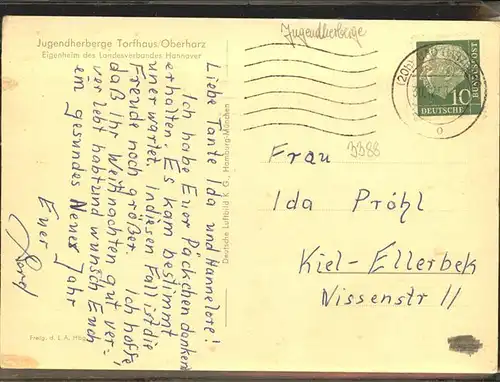 Jugendherberge Torfhaus/Oberharz
Eigenheim des Landesverbandes Hannover
Jugendherberge
Liebe Tante Ida und Hannelore!
Ich habe Euer Päckchen dankend
erhalten. Es kam bestimmt
unerwartet, in diesen Fall ist die
Freude noch größer. Ich hoffe,
daß Ihr Weihnachten gut ver-
verlebt habt und wünsch Euch
ein gesundes Neues Jahr
Euer
Deutsche Luftbild K. G., Hamburg-München
(20b)
DEUTSCHE
BUNDESPOST
10
3388
Frau
Ida Pröhl
Kiel-Ellerbek
Nissenstr 11
Freig. d. L. A. Hbg.